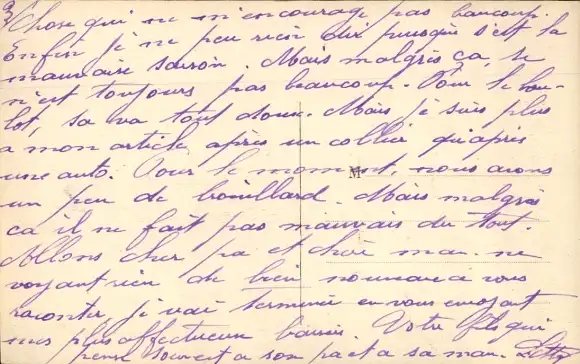 Chose qui ne m'encourage pas baucoup.
Enfin je ne peu rien dir puisque s'est la
mauvaise saison. Mais malgrès ça, se
n'est toujours pas beaucoup. Pour le bou-
lot, sa va tout doux. Mais je suis plus
a mon article après un collier qu'après
une auto. Pour le moment, nous avons
un peu de brouillard. Mais malgrès
ca il ne fait pas mauvais du tout.
Allons cher pa et chère man. ne
voyant rien de bien nouveau a vous
raconter je vai terminé en vous envoyant
mes plus affectueux baisers. Votre fils qui
pense souvent a son pa et a sa man.
M